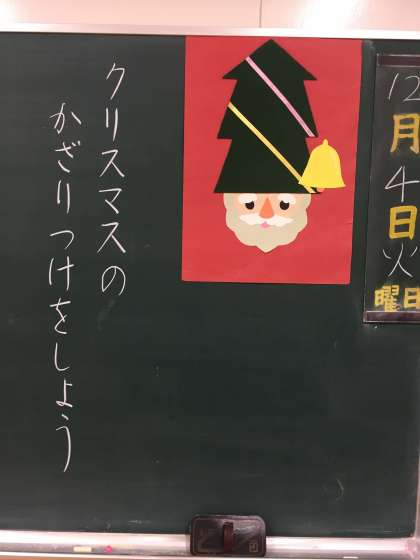 クリスマスの
かざりつけをしよう
12月4日火曜日